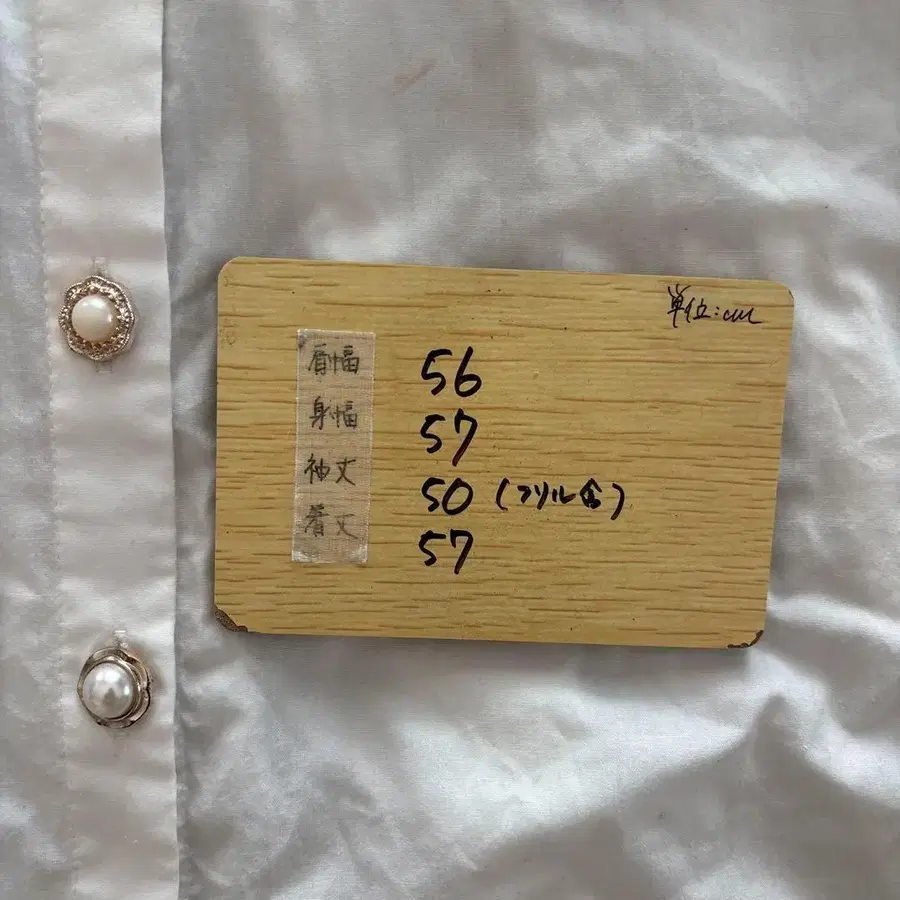 単位:cm
肩幅 56
身幅 57
袖丈 50 (フリル含)
着丈 57